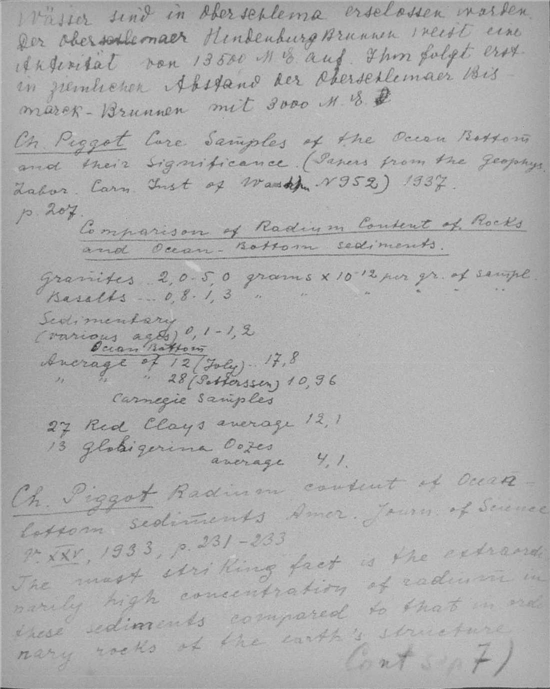 Wässer sind in Oberschlema erschlossen worden.
Der Oberschlemaer Hindenburg Brunnen weist eine
Aktivität von 13500 M.E. auf. Ihm folgt erst
in ziemlichen Abstand der Oberschlemaer Bis-
marck-Brunnen mit 3000 M.E.
Ch. Piggot Core Samples of the Ocean Bottom
and their Significance. (Papers from the Geophys.
Labor. Carn. Inst of Wash N 952) 1937.
p. 207.
Comparison of Radium Content of Rocks
and Ocean-Bottom sediments.
Granites.. 2,0-5,0 grams x 10-12 per gr. of sampl.
Basalts ... 0,8-1,3 " " " " "
Sedimentary
(various ages) 0,1-1,2
Ocean Bottom
Average of 12 (Joly).. 17,8
" " " 28 (Pettersson) 10,96
Carnegie Samples
27 Red Clays average 12,1
13 Globigerina Oozes
average 4,1.
Ch. Piggot Radium content of Ocean-
bottom sediments Amer. Journ. of Science
V. XXV, 1933, p. 231-233
The most striking fact is the extraordi-
narily high concentration of radium in
these sediments compared to that in ordi-
nary rocks of the earth's structure
(Cont p 7)